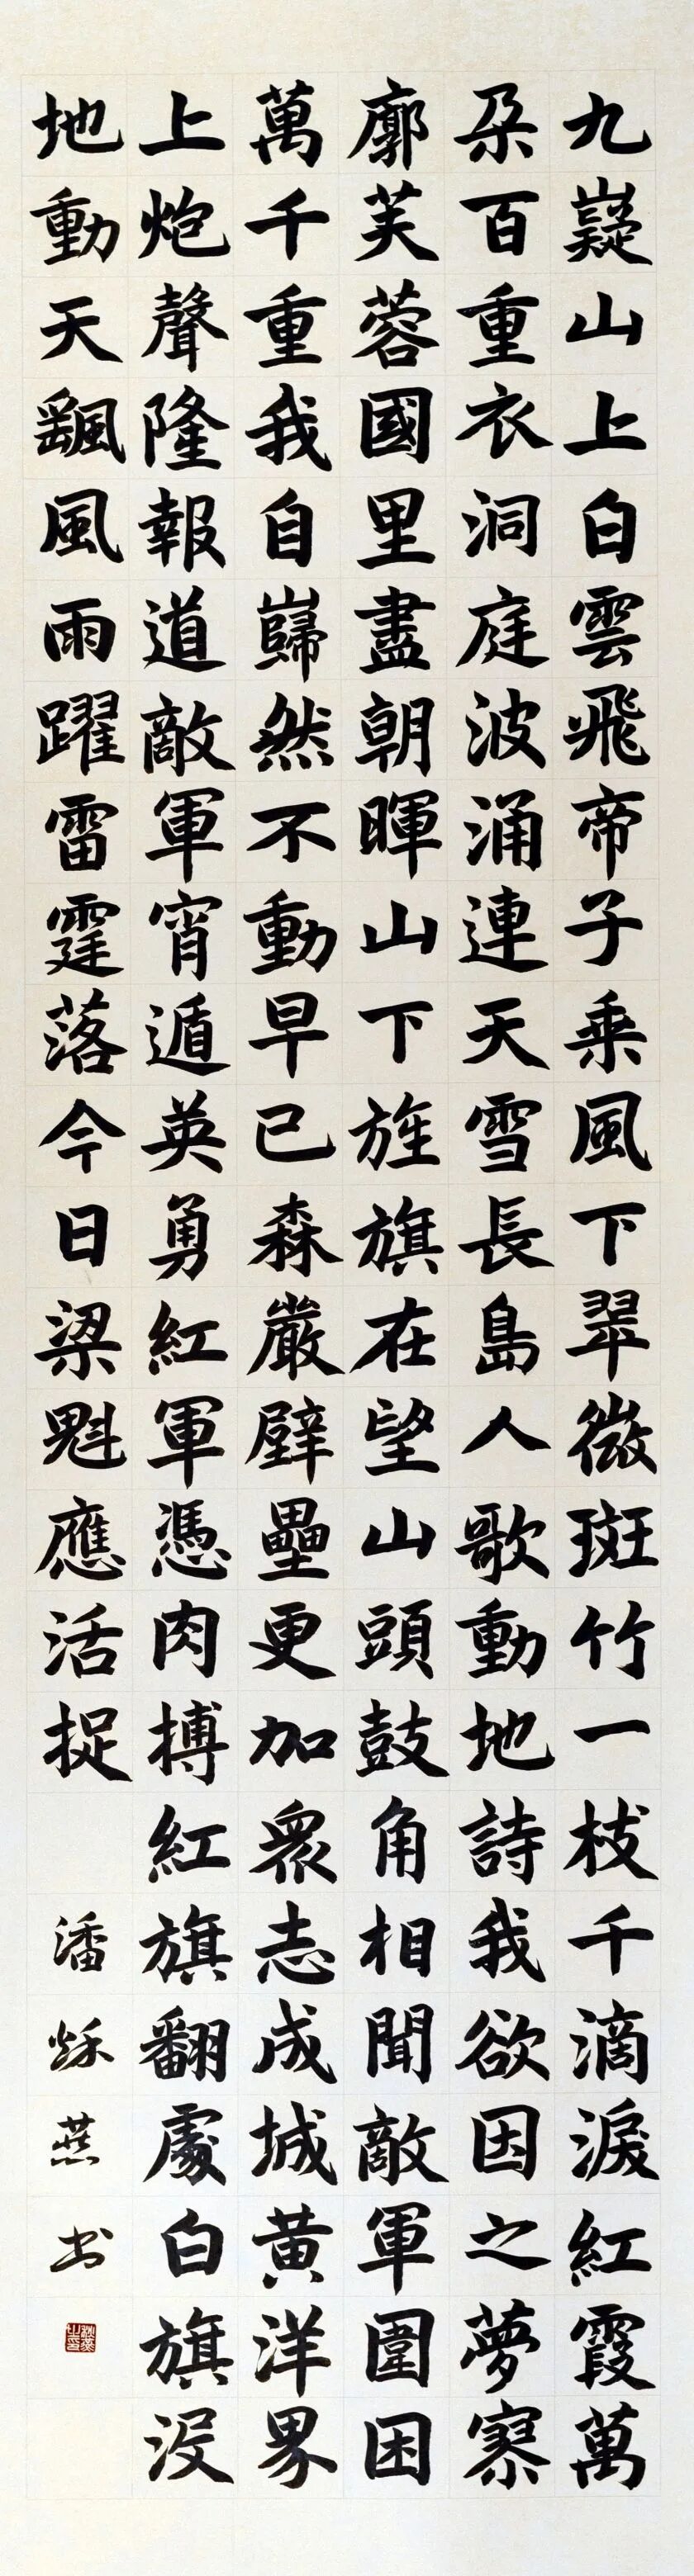 九嶷山上白雲飛帝子乘風下翠微斑竹一枝千滴淚紅霞萬
朵百重衣洞庭波涌連天雪長島人歌動地詩我欲因之夢寥
廓芙蓉國里盡朝暉山下旌旗在望山頭鼓角相聞敵軍圍困
萬千重我自巋然不動早已森嚴壁壘更加眾志成城黃洋界
上炮聲隆報道敵軍宵遁英勇紅軍憑肉搏紅旗翻處白旗沒
地動天颻風雨躍雷霆落今日梁魁應活捉
潘秌燕书